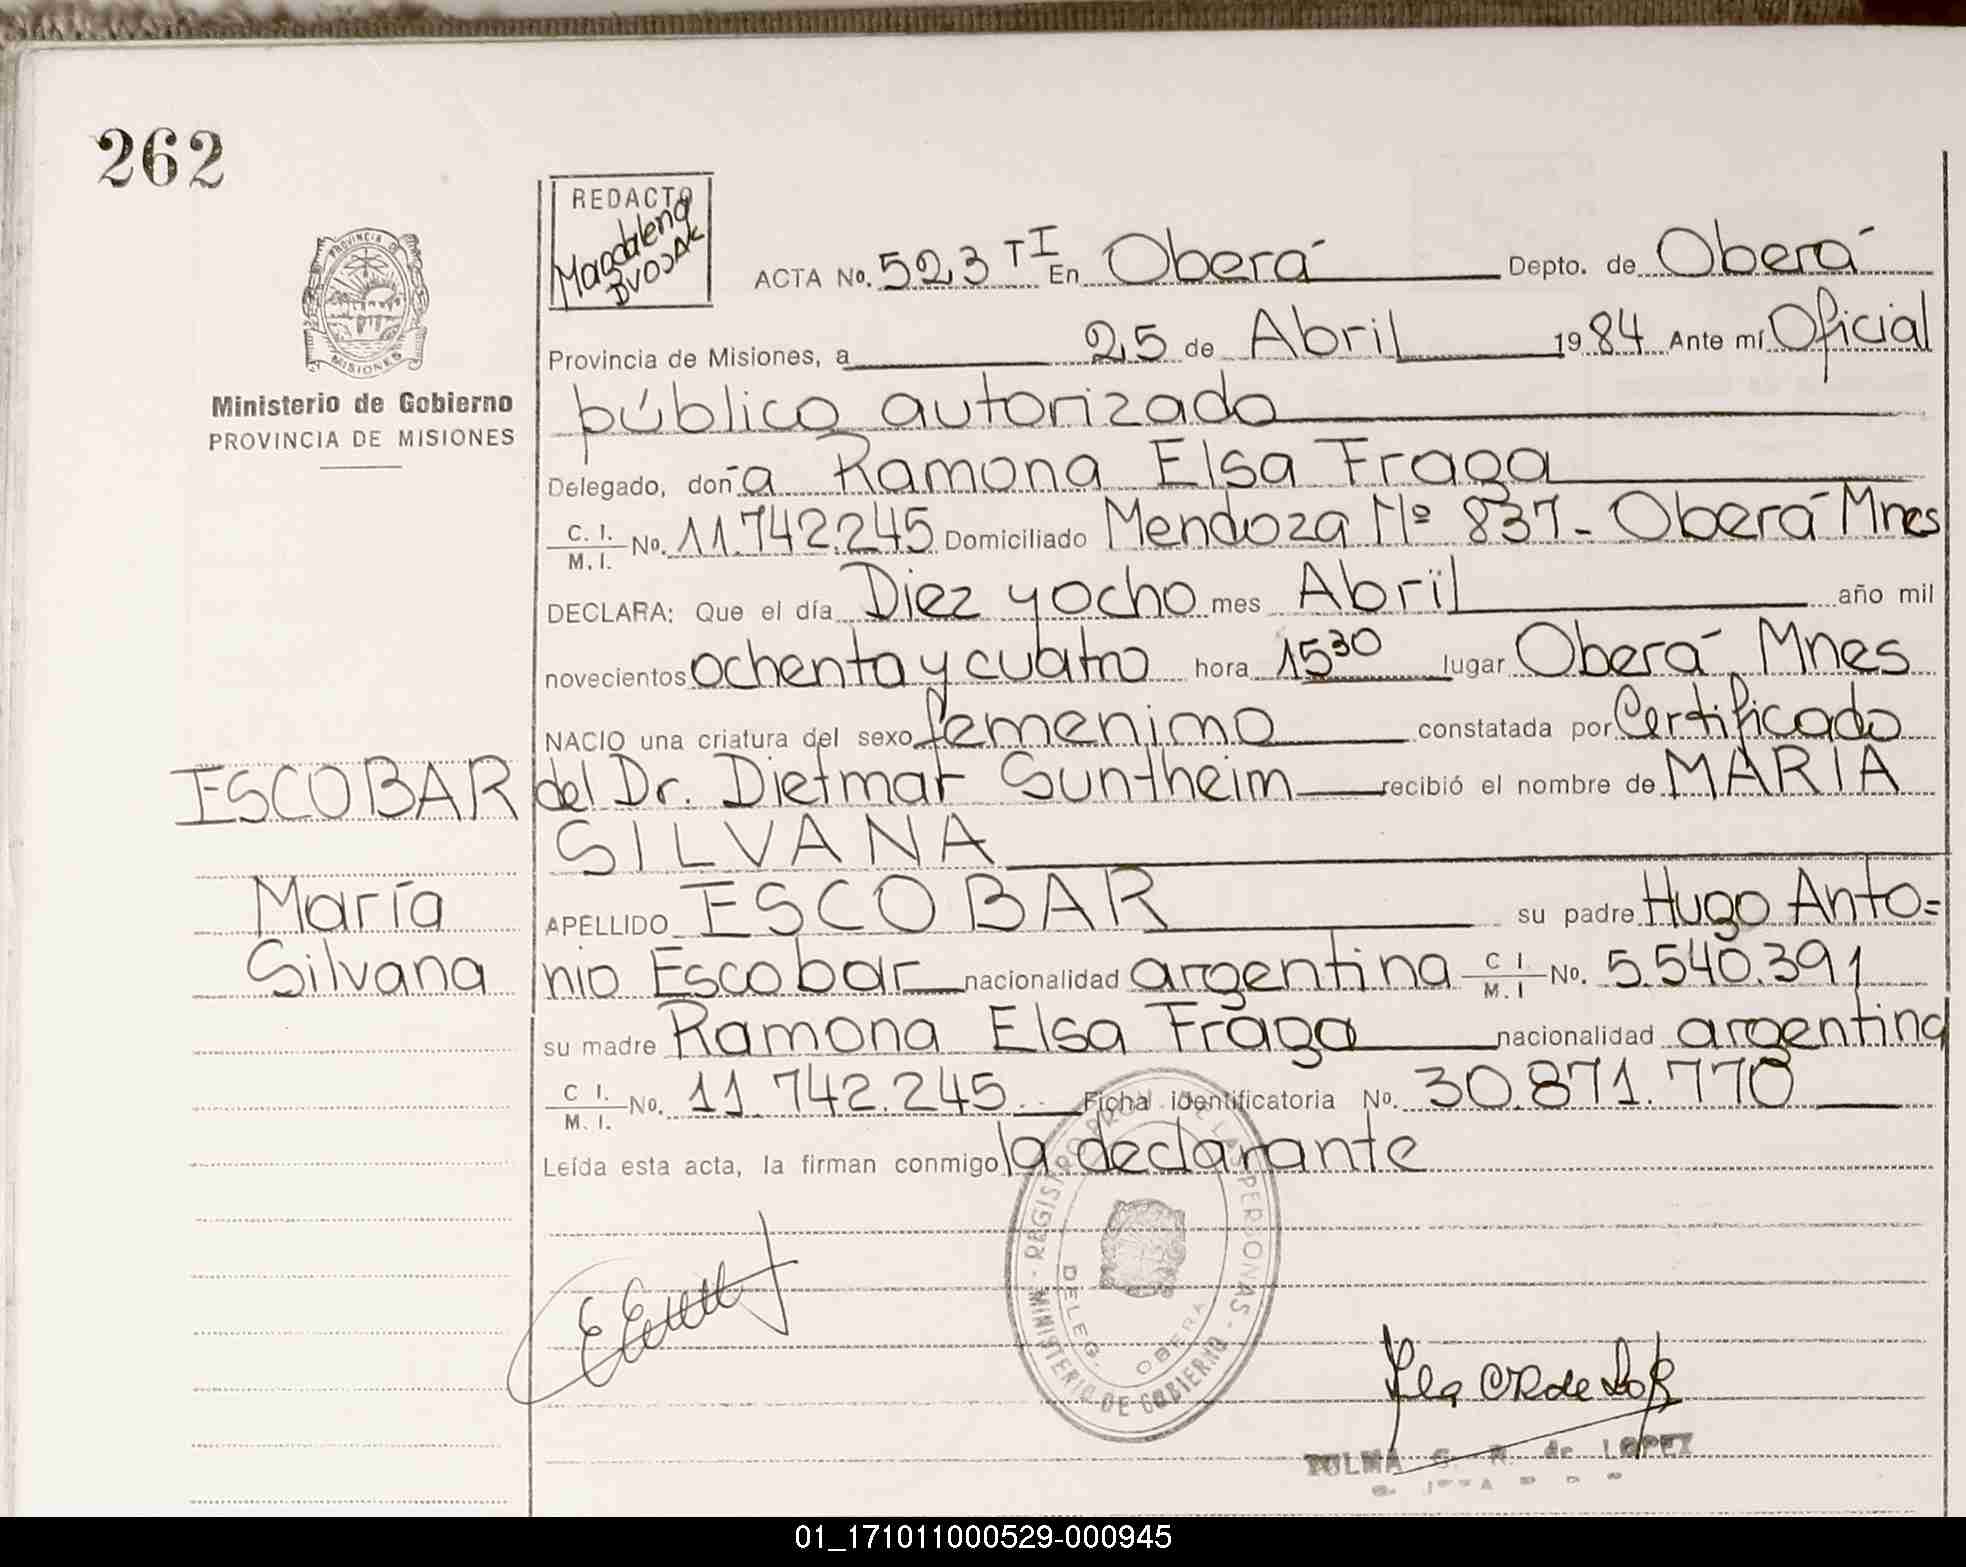 262
REDACTO
Magdalena
DVOJAK
PROVINCIA DE
MISIONES
Ministerio de Gobierno
PROVINCIA DE MISIONES
ACTA No. 523 TI En Oberá Depto. de Oberá
Provincia de Misiones, a 25 de Abril 1984 Ante mí Oficial
público autorizado
Delegado, doña Ramona Elsa Fraga
C. I. / M. I. No. 11.742.245 Domiciliado Mendoza Nº 837- Oberá Mnes
DECLARA: Que el día Diez y ocho mes Abril año mil
novecientos ochenta y cuatro hora 15 30 lugar Oberá Mnes
NACIO una criatura del sexo femenino constatada por Certificado
del Dr. Dietmar Suntheim recibió el nombre de MARIA
SILVANA
APELLIDO ESCOBAR su padre Hugo Anto=
nio Escobar nacionalidad argentina C I. / M. I No. 5.540.391
su madre Ramona Elsa Fraga nacionalidad argentina
C I. / M. I. No. 11.742.245 Ficha identificatoria No. 30.871.770
Leída esta acta, la firman conmigo la declarante
ESCOBAR
María
Silvana
REGISTRO PROV. DE LAS PERSONAS - MINISTERIO DE GOBIERNO -
DELEG. OBERA
G. R. de LOPEZ
01_171011000529-000945